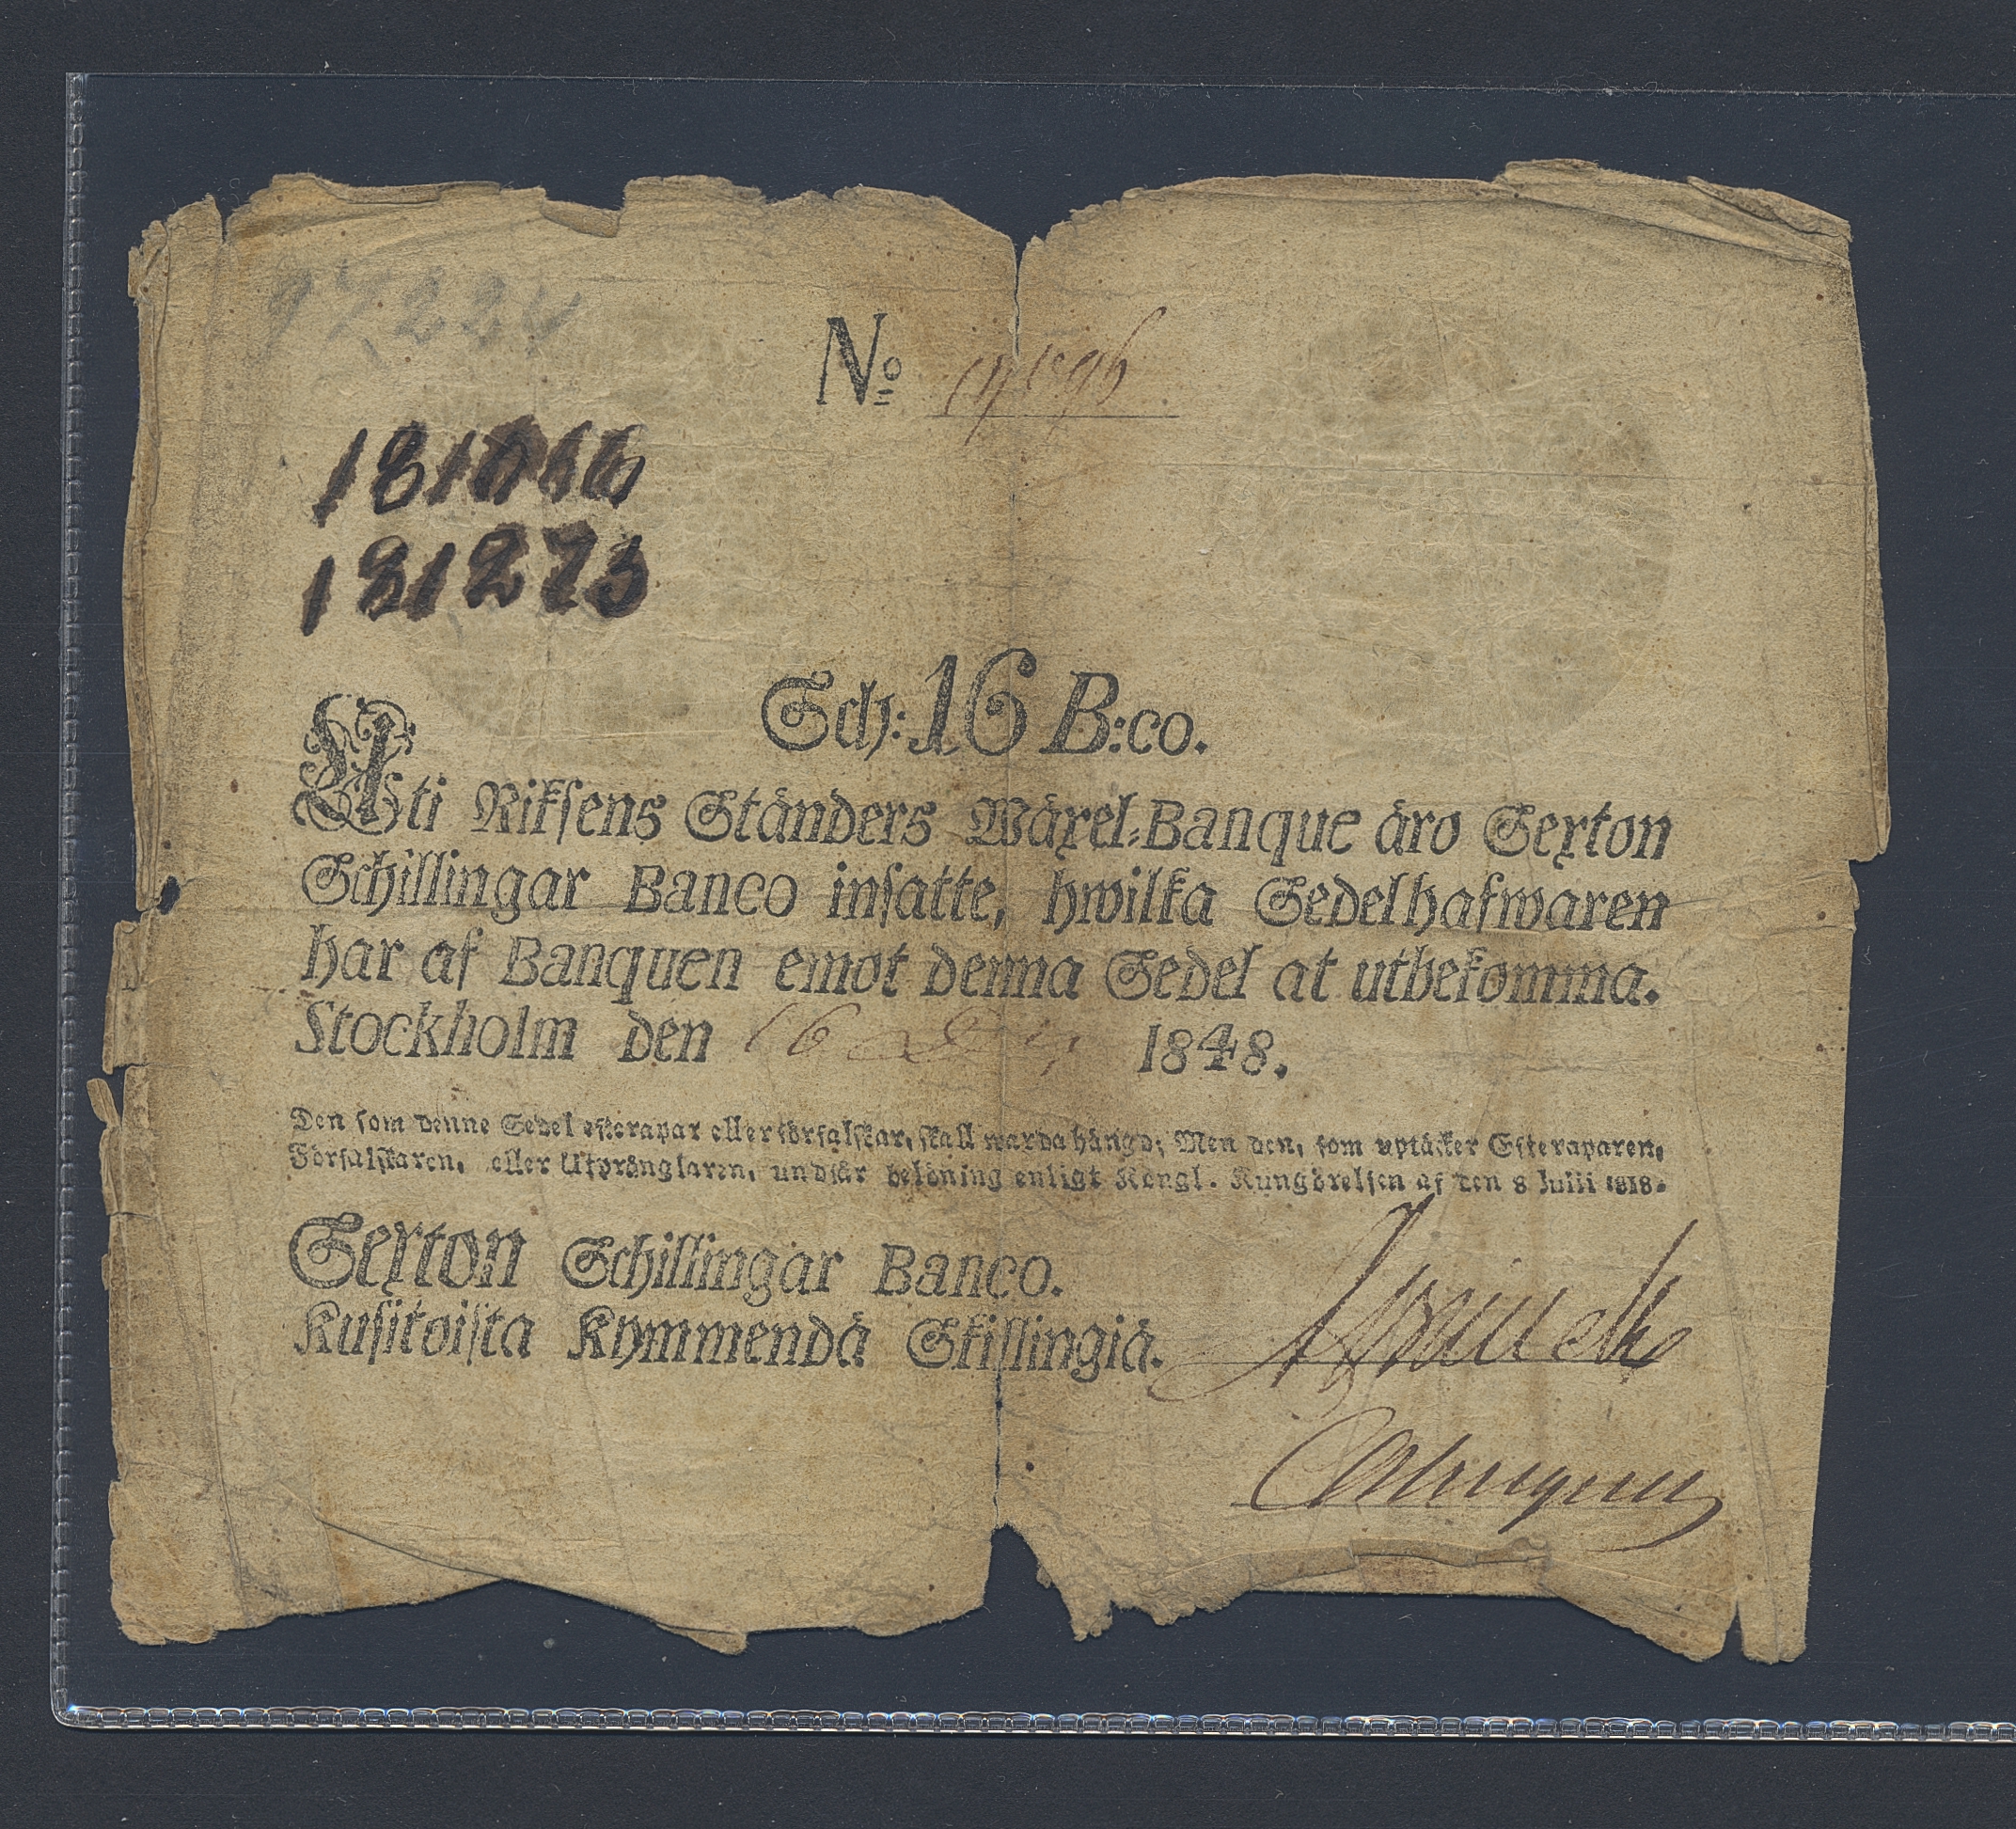 97,224
No
181066
181273
Sch: 16 B:co.
Uti Riksens Ständers Wäxel-Banque äro Sexton
Schillingar Banco insatte, hwilka Sedelhafwaren
har af Banquen emot denna Sedel at utbekomma.
Stockholm den 16 1848.
Den som denne Sedel efterapar eller förfalskar, skall warda hängd; Men den, som uptäcker Efteraparen,
Förfalskaren, eller Utprånglaren, undfår belöning enligt Kongl. Kungörelsen af den 8 Julii 1818.
Sexton Schillingar Banco.
Kusitoista Kymmendä Skillingiä.